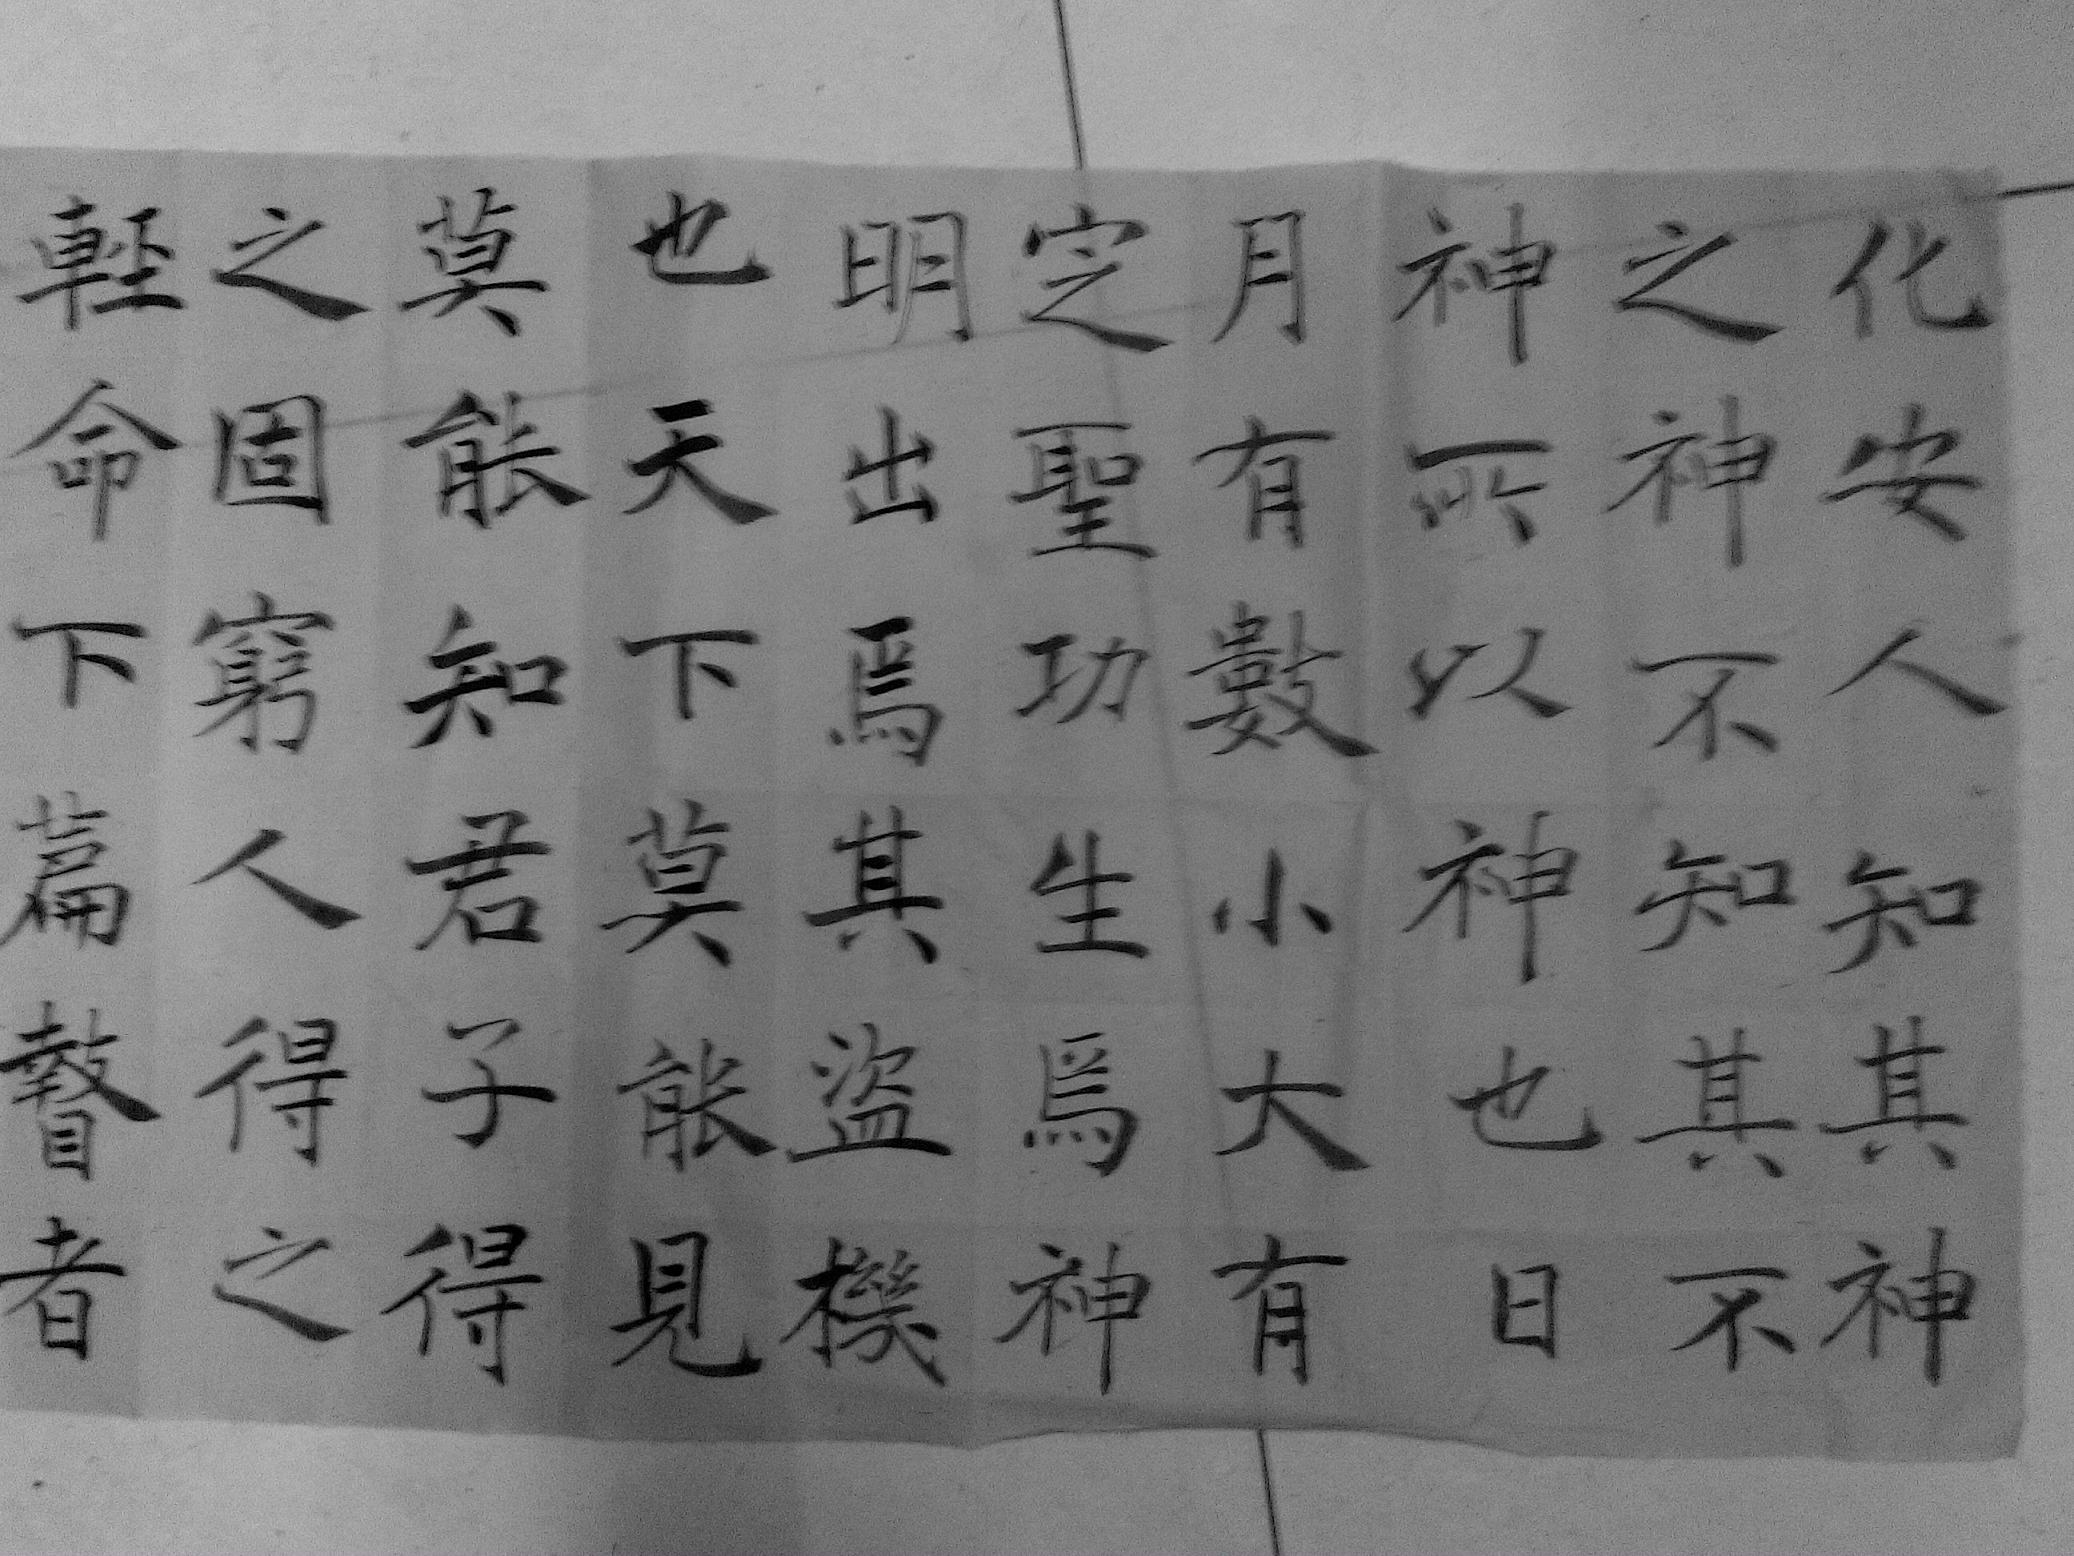 化安人知其神
之神不知其不
神所以神也日
月有數小大有
定聖功生焉神
明出焉其盜機
也天下莫能見
莫能知君子得
之固窮人得之
輕命下篇瞽者